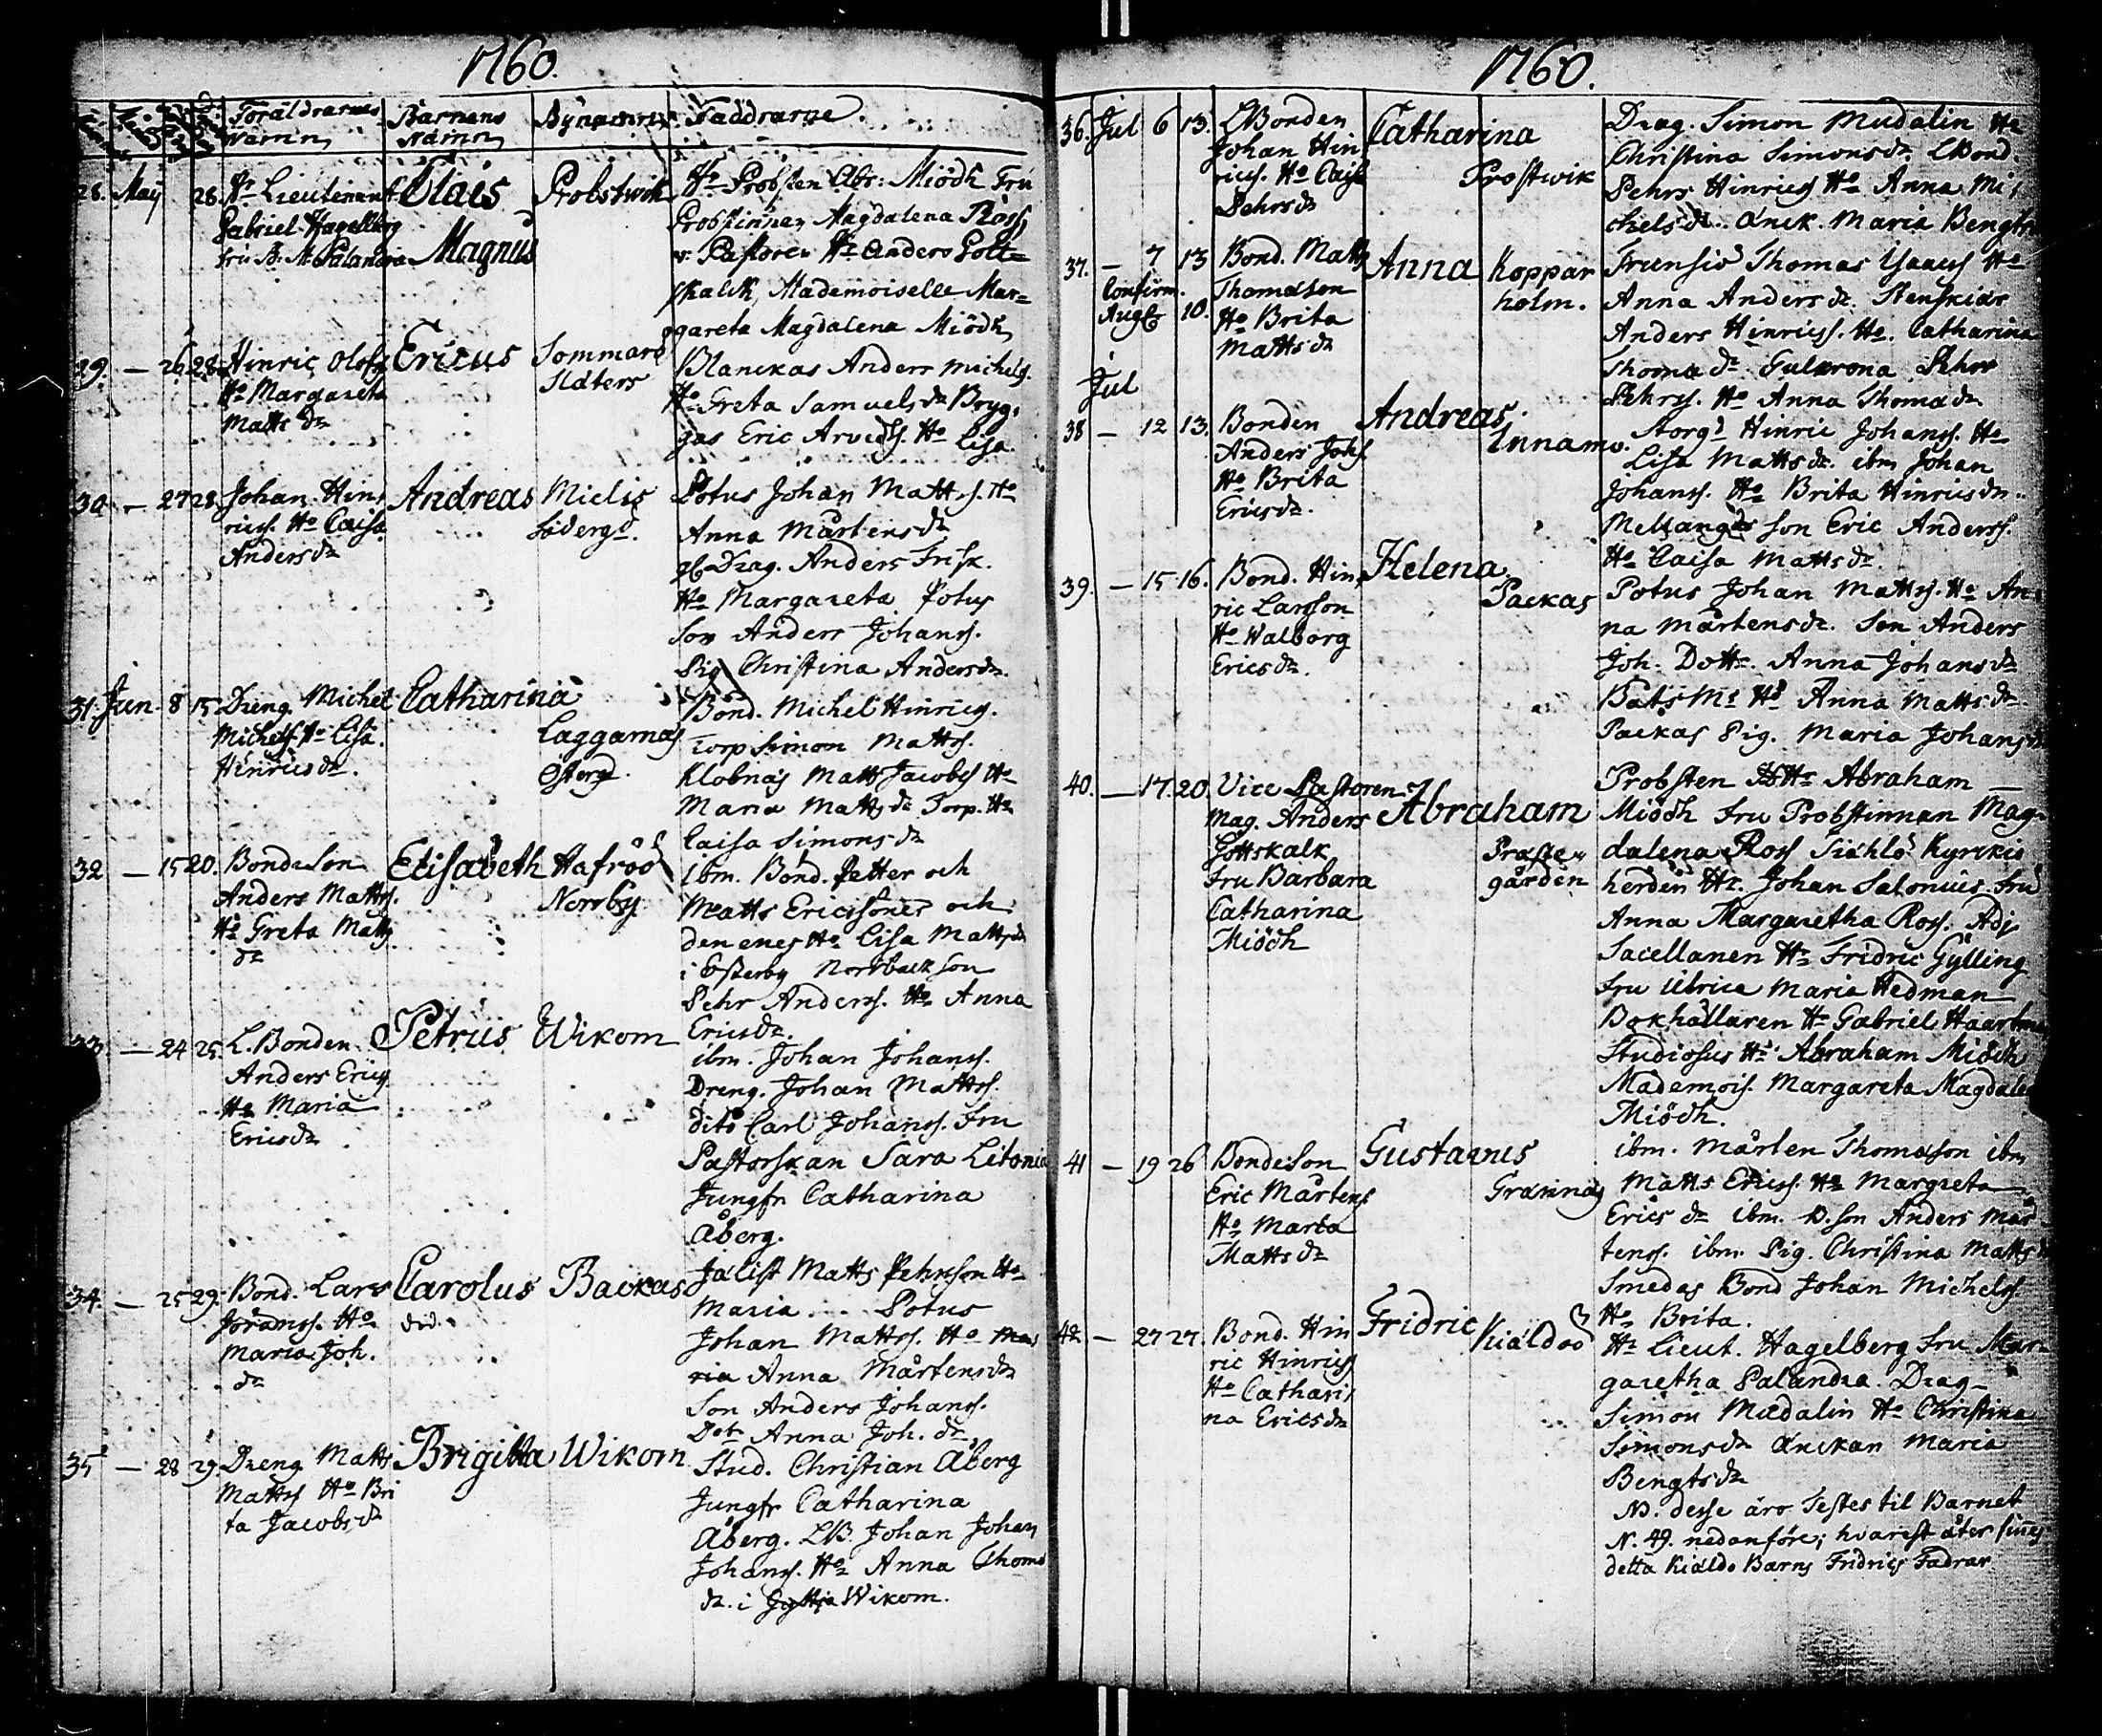 1760.
Föräldrarnes Namn Barnens Namn Bynamnen Faddrarne.
28. Maij 28. Hr Lieutenant Gabriel Hagelberg Fru B. M. Palandra
Claës Magnus
Probstwik
Hr Probsten Abr: Miödh Fru
Probstinnan Magdalena Ross,
v. Pastoren Hr Anders Gott=
skalck, Mademoiselle Mar=
gareta Magdalena Miödh
29. — 26 28. Hinric Olofss
Ho Margareta
Matts dr
Ericus
Sommarö
Släters
Blanckas Anders Michels.
Ho Greta Samuels dr Bryg,
gas Eric Arvedss. Ho Lisa.
30. — 27 28. Johan Hin,
ricss. Ho Caisa
Anders dr
Andreas
Mielis
Söderg d.
Potus Johan Mattss. Ho
Anna Mårtens dr
gl Drag. Anders Frisk.
Ho Margareta Potus
Son Anders Johanss.
Pig Christina Anders dr.
31. Jun. 8 15. Dreng Michel
Michelss Ho Lisa
Hinrics dr.
Catharina
Laggarnäs
Österg d.
Bond. Michel Hinrics.
Torp Simon Mattss.
Klobnäs Matts Jacobss Ho
Maria Matts dr Torp. Ho
Caisa Simons dr
32 — 15 20. BondeSon
Anders Mattss.
Ho Greta Matts
dr
Elisabeth
Hafröö
Norrby
ibm. Bond. Petter och
Matts Ericssöner och
den enes Ho Lisa Matts dr
i Österby Norrback Son
Pehr Anderss. Ho Anna
Erics dr.
33. — 24 25. L. Bonden
Anders Ericss
Ho Maria
Erics dr
Petrus
Wikom
ibm. Johan Johanss.
Dreng. Johan Mattss.
dito Carl Johanss. Fru
Pastorskan Sara Litonia
Jungfr Catharina
Åberg.
34. — 25 29. Bond. Lars
Jöranss. Ho
Maria Joh.
dr
Carolus
Backas
Jälist Matts Pehrsson Ho
Maria . . . Potus
Johan Mattss. Ho Ma
ria Anna Mårtens dr
Son Anders Johanss.
Dotr Anna Joh. dr,
35 — 28 29 Dreng Matts
Mattss Ho Bri
ta Jacobs dr
Brigitta
Wikom
Stud. Christian Åberg
Jungfr Catharina
Åberg. LB. Johan Johan
Johanss. Ho Anna Thoms
dr. i Wikom.
1760.
36. Jul 6 13. LBonden
Johan Hin
ricss. Ho Caisa
Pehrs dr
Catharina
Prostwik
Drag. Simon Mudalin Ho
Christina Simons dr. LBond.
Pehrs Hinrics Ho Anna Mi,
chels dr. Änck. Maria Bengts
37. — 7 13 Bond. Matts
Confirm. Augti 10. Thomasson
Ho Brita
Matts dr
Anna
Koppar
holm.
Frensiö Thomas Isaacss Ho
Anna Anders dr. Stenskiär
Anders Hinricss. Ho. Catharina
Thoma dr. Gulkrona Pehr
Pehrss. Ho Anna Thoma dr
Jul
38 — 12 13. Bonden
Anders Johs.
Ho Brita
Erics dr.
Andreas
Innamo.
Storg d Hinric Johanss. Ho
Lisa Matts dr. ibm Johan
Johanss. Ho Brita Hinrics dr.
Mellangds Son Eric Anderss.
Ho Caisa Matts dr.
39. — 15 16. Bond. Hin,
ric Larsson
Ho Walborg
Erics dr.
Helena
Packas
Potus Johan Mattss. Ho An,
na Mårtens dr. Son Anders
Joh. Dottr. Anna Johans dr
Båts M: Ho Anna Matts dr
Packas Pig. Maria Johans dr
40. — 17. 20. Vice Pastoren
Mag. Anders
Gottskalk
Fru Barbara
Catharina
Miödh
Abraham
Präste,,
gården
Probsten Hr Abraham
Miödh Fru Probstinnan Mag-
dalena Ross Kyrckio
herden Hr. Johan Salonius Fru
Anna Margaretha Ross. Adj.
Sacellanen Hr Fridric Gylling
Fru Ulrica Maria Hedman
Bokhållaren Hr Gabriel Haartman
Studiosus Hr Abraham Miödh
Mademois. Margareta Magdalena
Miödh.
41 — 19 26 BondeSon
Eric Mårtenss
Ho Maria
Matts dr
Gustavus
Grännäs
ibm. Mårten Thomasson ibm
Matts Ericss. Ho Margreta
Erics dr ibm. B. Son Anders Mår
tenss. ibm Pig. Christina Matts dr
Smedas Bond Johan Michelss.
Ho Brita.
42. — 27 27. Bond. Hin
ric Hinricss
Ho Cathari,
na Erics dr
Fridric
Kiäldöö
Hr Lieut. Hagelberg Fru Mar-
garetha Palandra Drag
Simon Mudalin Ho Christina
Simons dr Änckan Maria
Bengts dr
NB. desse äro Testes til Barnet
N. 49. nedanföre; hvarest åter finnes
detta Kiäldö Barns Fridrics Fadrar